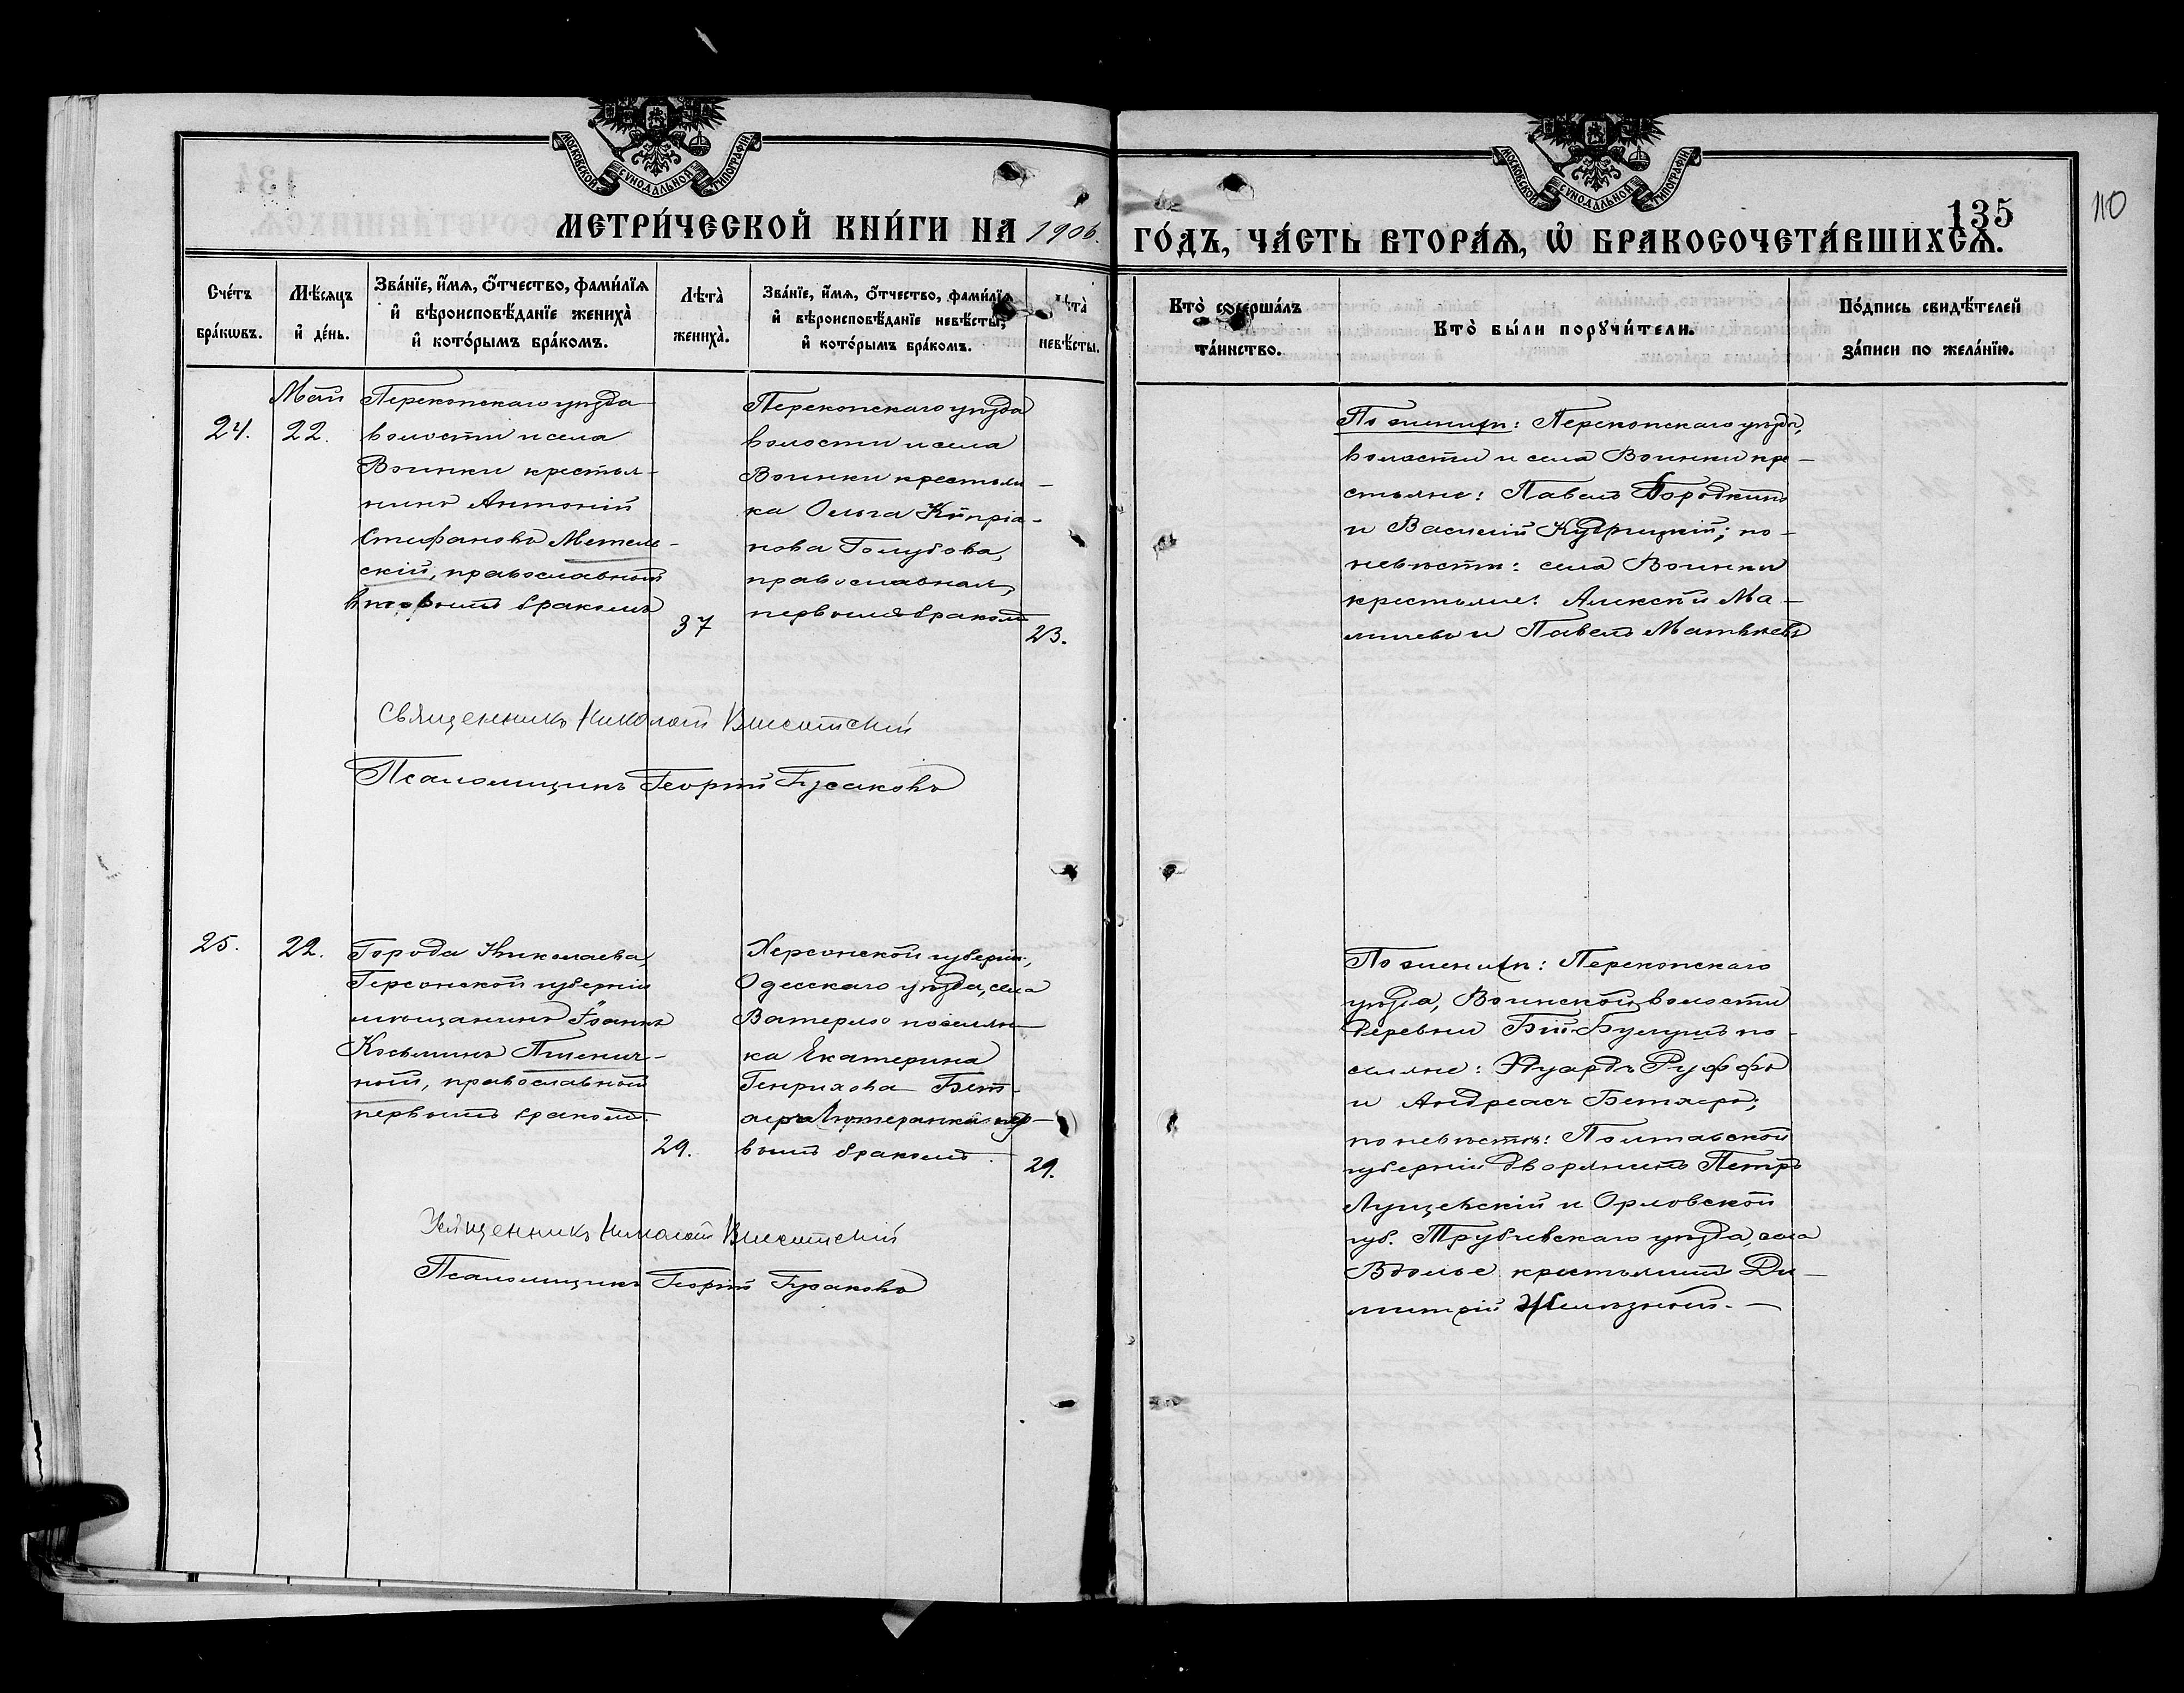 МОСКОВСКОЙ СѴНОДАЛЬНОЙ ТИПОГРАФІИ.
МОСКОВСКОЙ СѴНОДАЛЬНОЙ ТИПОГРАФІИ.
135
110
МЕТРИ́ЧЕСКОЙ КНИ́ГИ НА 1906. ГО́ДЪ, ЧА́СТЬ ВТОРА́Я, Ѡ БРАКОСОЧЕТА́ВШИХСЯ.
Сче́тъ бра́кѡвъ.
Мѣ́сяцъ и де́нь.
Зва́нїе, и́мя, о́тчество, фами́лїя
и вѣроисповѣ́данїе жениха̀
и кото́рымъ бра́комъ.
Лѣта̀ жениха̀.
Зва́нїе, и́мя, о́тчество, фами́лїя
и вѣроисповѣ́данїе невѣ́сты,
и кото́рымъ бра́комъ.
Лѣта̀ невѣ́сты.
Кто̀ соверша́лъ та́инство.
Кто̀ бы́ли порꙋчи́тели.
По́дпись свидѣ́телей
за́писи по жела́нїю.
24.
Май
22.
Перекопскаго уѣзда
волости и села
Воинки крестья-
нинъ Антоній
Стефановъ Метель-
скій, православный
вторымъ бракомъ
37
Перекопскаго уѣзда
волости и села
Воинки крестьян-
ка Ольга Кипріа-
нова Голубова,
православная,
первымъ бракомъ
23.
По женихѣ: Перекопскаго уѣзда,
волости и села Воинки кре-
стьяне: Павелъ Бородкинъ
и Василій Кудрицкій; по
невѣстѣ: села Воинки
крестьяне: Алексѣй Ма-
и Павелъ
Священникъ Николай Высотскій
Псаломщикъ Георгій Гусаковъ
25.
22.
Города Николаева,
Херсонской губерніи
мѣщанинъ Іоаннъ
Косьминъ Пшенич-
ной, православный
первымъ бракомъ.
29.
Херсонской губерніи,
Одесскаго уѣзда, села
Ватерлоо поселян-
ка Екатерина
Генрихова Бет-
херъ лютеранка пер-
вымъ бракомъ.
29.
По женихѣ: Перекопскаго
уѣзда, Воинской волости
деревни Бій-Булушъ по-
селяне: Эдуардъ Руффъ
и Андреасъ Бетхеръ;
по невѣстѣ: Полтавской
губерніи дворянинъ Петръ
Лущевскій и Орловской
губ. Трубчевскаго уѣзда, села
крестьянинъ Ди-
митрій Желѣзной.
Священникъ Николай Высотскій
Псаломщикъ Георгій Гусаковъ